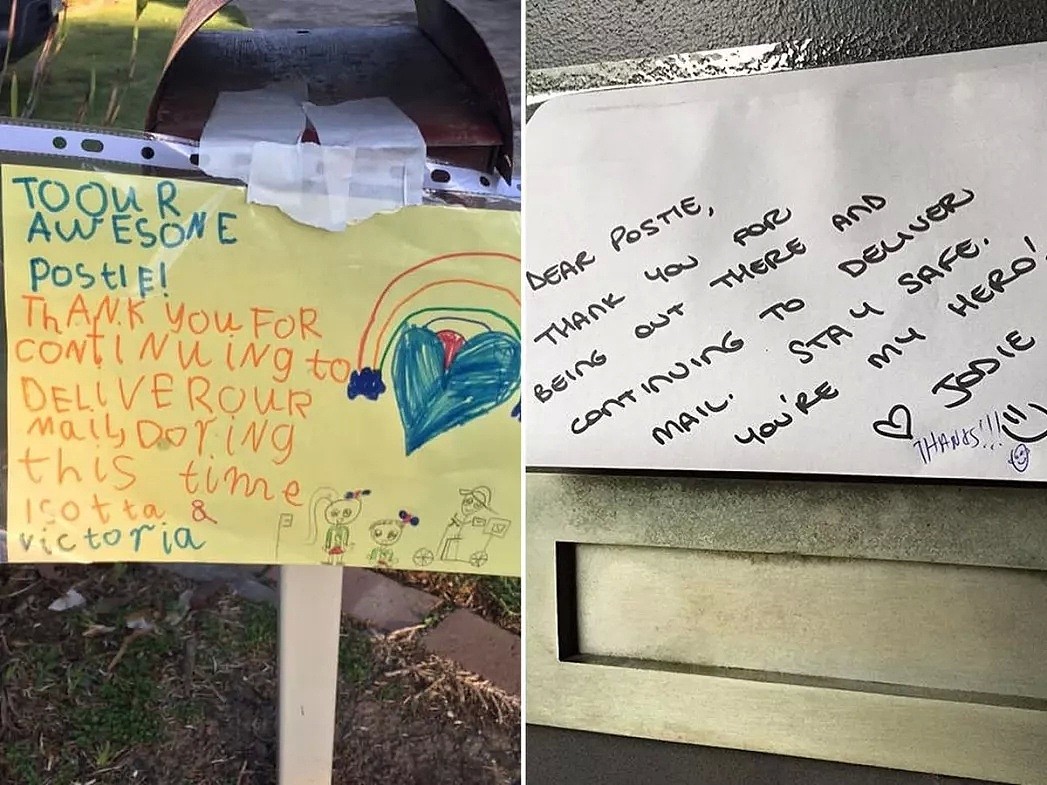 TO OUR
AWESONE
POSTIE!
THANK YOU FOR
CONTINUING to
DELIVER OUR
Mail DORING
this time
Isotta &
victoria
DEAR POSTIE,
THANK YOU FOR
BEING OUT THERE AND
CONTINUING TO DELIVER
MAIL. STAY SAFE.
YOU'RE MY HERO!
♡ JODIE
THANKS!!!